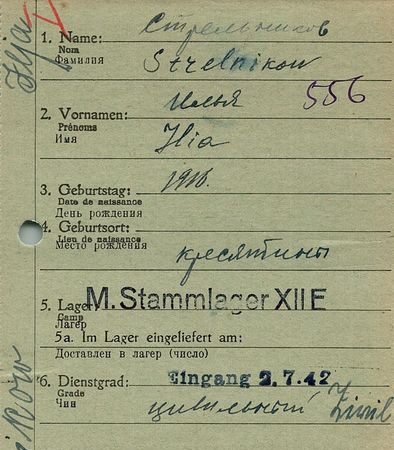 Стрельников
1. Name:
Nom
Фамилия
Strelnikow
Илья
556
2. Vornamen:
Prénoms
Имя
Ilia
1916.
3. Geburtstag:
Date de naissance
День рождения
4. Geburtsort:
Lieu de naissance
Место рождения
кресятины
5. Lager
Camp
Лагерь
M. Stammlager XII E
5a. Im Lager eingeliefert am:
Доставлен в лагерь (число)
6. Dienstgrad:
Grade
Чин
Eingang 2.7.42
цивильный Zivil
Ilja